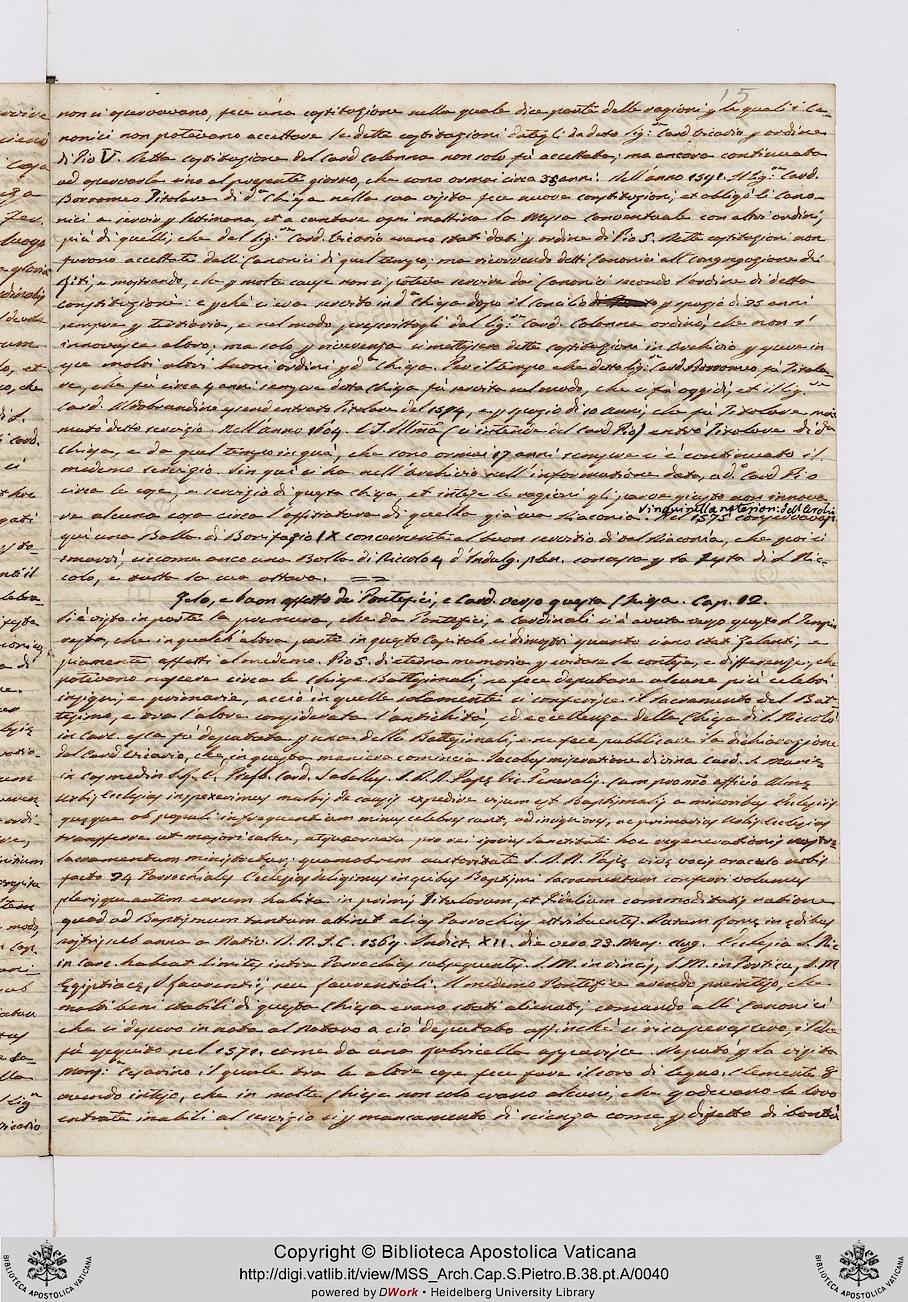 15
non si osservavano, fece una costituzione nella quale dice parte delle ragioni p le quali i Ca-
nonici non potevano accettare le dette costituzioni dategli da detto Sig.r Card. Vicario p ordine
di Pio V. Detta costituzione del Card Colonna non solo fù accettata, ma ancora continuata
ad osservarsi sino al presente giorno, che sono ormai circa 35 anni. Nell'anno 1591. Il Sig.r Card.
Borromeo Titolare di d.a Chiesa nella sua visita fece nuove constituzioni, et obligò li Cano-
nici a servir p settimana, et a cantare ogni mattina la Messa Conventuale con altri ordini,
più di quelli, che dal Sig.r Card. Vicario erano stati dati p ordine di Pio 5. Dette costituzioni non
furono accettate dalli Canonici di quel tempo, ma ricorrendo detti Canonici all Congregazione de
Riti, e mostrando, che p molte cause non si poteva servire dai Canonici secondo l'ordine di detta
constituzione: e pche si era servito in d.a Chiesa dopo il Concilio p spazio di 25 anni
sempre p Terziaria, e nel modo prescrittogli dal Sig.r Card. Colonna ordinò, che non si
innovasse altro; ma solo p ricevenza si mettessero dette costituzioni in Archivio p
molti altri buoni ordini p d.a Chiesa. Per il tempo che detto Sig.r Card. Borromeo fù Titola-
re, che fù circa 4 anni sempre detta Chiesa fù servita nel modo, che si fà oggidì, et il Sig.r
Card. Aldobrandino essendo entrato Titolare del 1594, e p spazio di 10 anni, che fù Titolare
mutò detto servizio. Nell'anno 1604. V.S. Illma (s'intende del Card Pio) entrò Titolare di d.a
Chiesa, e da quel tempo in quà, che sono ormai 17 anni sempre si è continuato il
medemo servizio. Sin quì si ha nell'Archivio nell'informazione data, a d.o Card Pio
circa le cose, e servizio di questa Chiesa, et intese le ragioni gli parve giusto non innova
re alcuna cosa circa l'offiziatura di quella già era Diaconia. Nel 1575 conservavasi
quì una Bolla di Bonifazio IX concernente al buon servizio di tal Diaconia, che poi si
smarrì, siccome anco una Bolla di Niccolo 4 d'Indulg. plen. concessa p la Festa di S. Nic-
colo, e tutta la sua ottava.
Zelo, e buon affetto de Pontefici, e Card. verso questa Chiesa. Cap. 12.
Si è visto in parte la premura, che da Pontefici, e Cardinali si è avuta verso questo Tempio
resta, che in qualch'altra parte in questo Capitolo si dimostri quanto siano stati Zelanti, e
piamente affetti al medemo. Pio 5. di eterna memoria p evitare le contese, e differenze, che
potevano nascere circa le Chiese Battesimali, ne fece deputare alcune più celebri
insigni, e primarie, acciò in quelle solamente si conferisse il Sacramento del Bat-
tesimo, e tra l'altre considerata l'antichità, ed eccellenza della Chiesa di S. Niccolò
in Carc. essa fù deputata p una delle Battesimali, e ne fece pubblicare la dichiarazione
dal Card Vicario, che in questa maniera comincia Jacobus miseratione divina Card. S. Mariæ
in Cosmedin S.R.E. Presb. Card. Sabellus S.D.N. Papæ Vic. Generalis. Cum pro nro officio Almæ
Urbis Ecclesias inspexerimus multis de causis expedire visum est Baptismalis a minoribus Ecclesiis
quæque ob populi infrequentiam minus celebres sunt, ad insigniores, ac primarias Urbis Ecclesias
transferre ut majori cultu, atque ornatu pro rei ipsius sanctitate hoc regenerationis nostræ
sacramentum ministretur; quamobrem auctoritate S.D.N. Papæ vivæ vocis oraculo nobis
facto 24 Parrochiales Ecclesias deligimus in quibus Baptismi sacramentum conferri volumus
plerisque autem earum habita in primis Titulorum, et Fidelium commoditatis ratione
quod ad Baptismum tantum attinet alias Parrochias attribuentes. Datum Romæ in edibus
nostris sub anno a Nativ. D.N.J.C. 1569 Indict. XII. die vero 23. Mens. Aug. Ecclesia S. Nic.
in Carc. habeat limites intra Parrochias subsequentes. S.M. in vincis, S.M. in Portico, S.M.
Egiptiacæ, S. faventi, seu faventoli. Il medemo Pontefice avendo presentito, che
molti beni stabili di questa Chiesa erano stati alienati, comandò alli Canonici
che si dessero in nota al Notaro a ciò deputato affinchè si ricuperassero, il che
fù eseguito nel 1571. come da una fabricella apparisce. Deputò p la visita
Mons.r Cesarino il quale tra le altre cose fece fare il coro di legno. Clemente 8
avendo inteso, che in molte Chiese non solo erano alcuni, che godevano le loro
entrate inabili al servizio sì p mancamento di scienza come p difetto di bontà
Copyright © Biblioteca Apostolica Vaticana
http://digi.vatlib.it/view/MSS_Arch.Cap.S.Pietro.B.38.pt.A/0040
powered by DWork • Heidelberg University Library
BIBLIOTECA APOSTOLICA VATICANA
BIBLIOTECA APOSTOLICA VATICANA